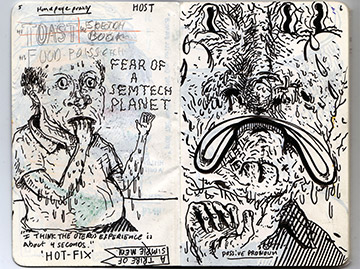 5
Home page proxy
HOST
MY TOAST SKETCH
BOOK
MY FOOD POISSECH
FEAR OF
A
SEMTECH
PLANET
"I THINK THE UTERUS EXPERIENCE is
about 4 seconds."
"HOT-FIX"
A TRIBE OF
SIMPLE MEN
PASSIVE PRONOUN